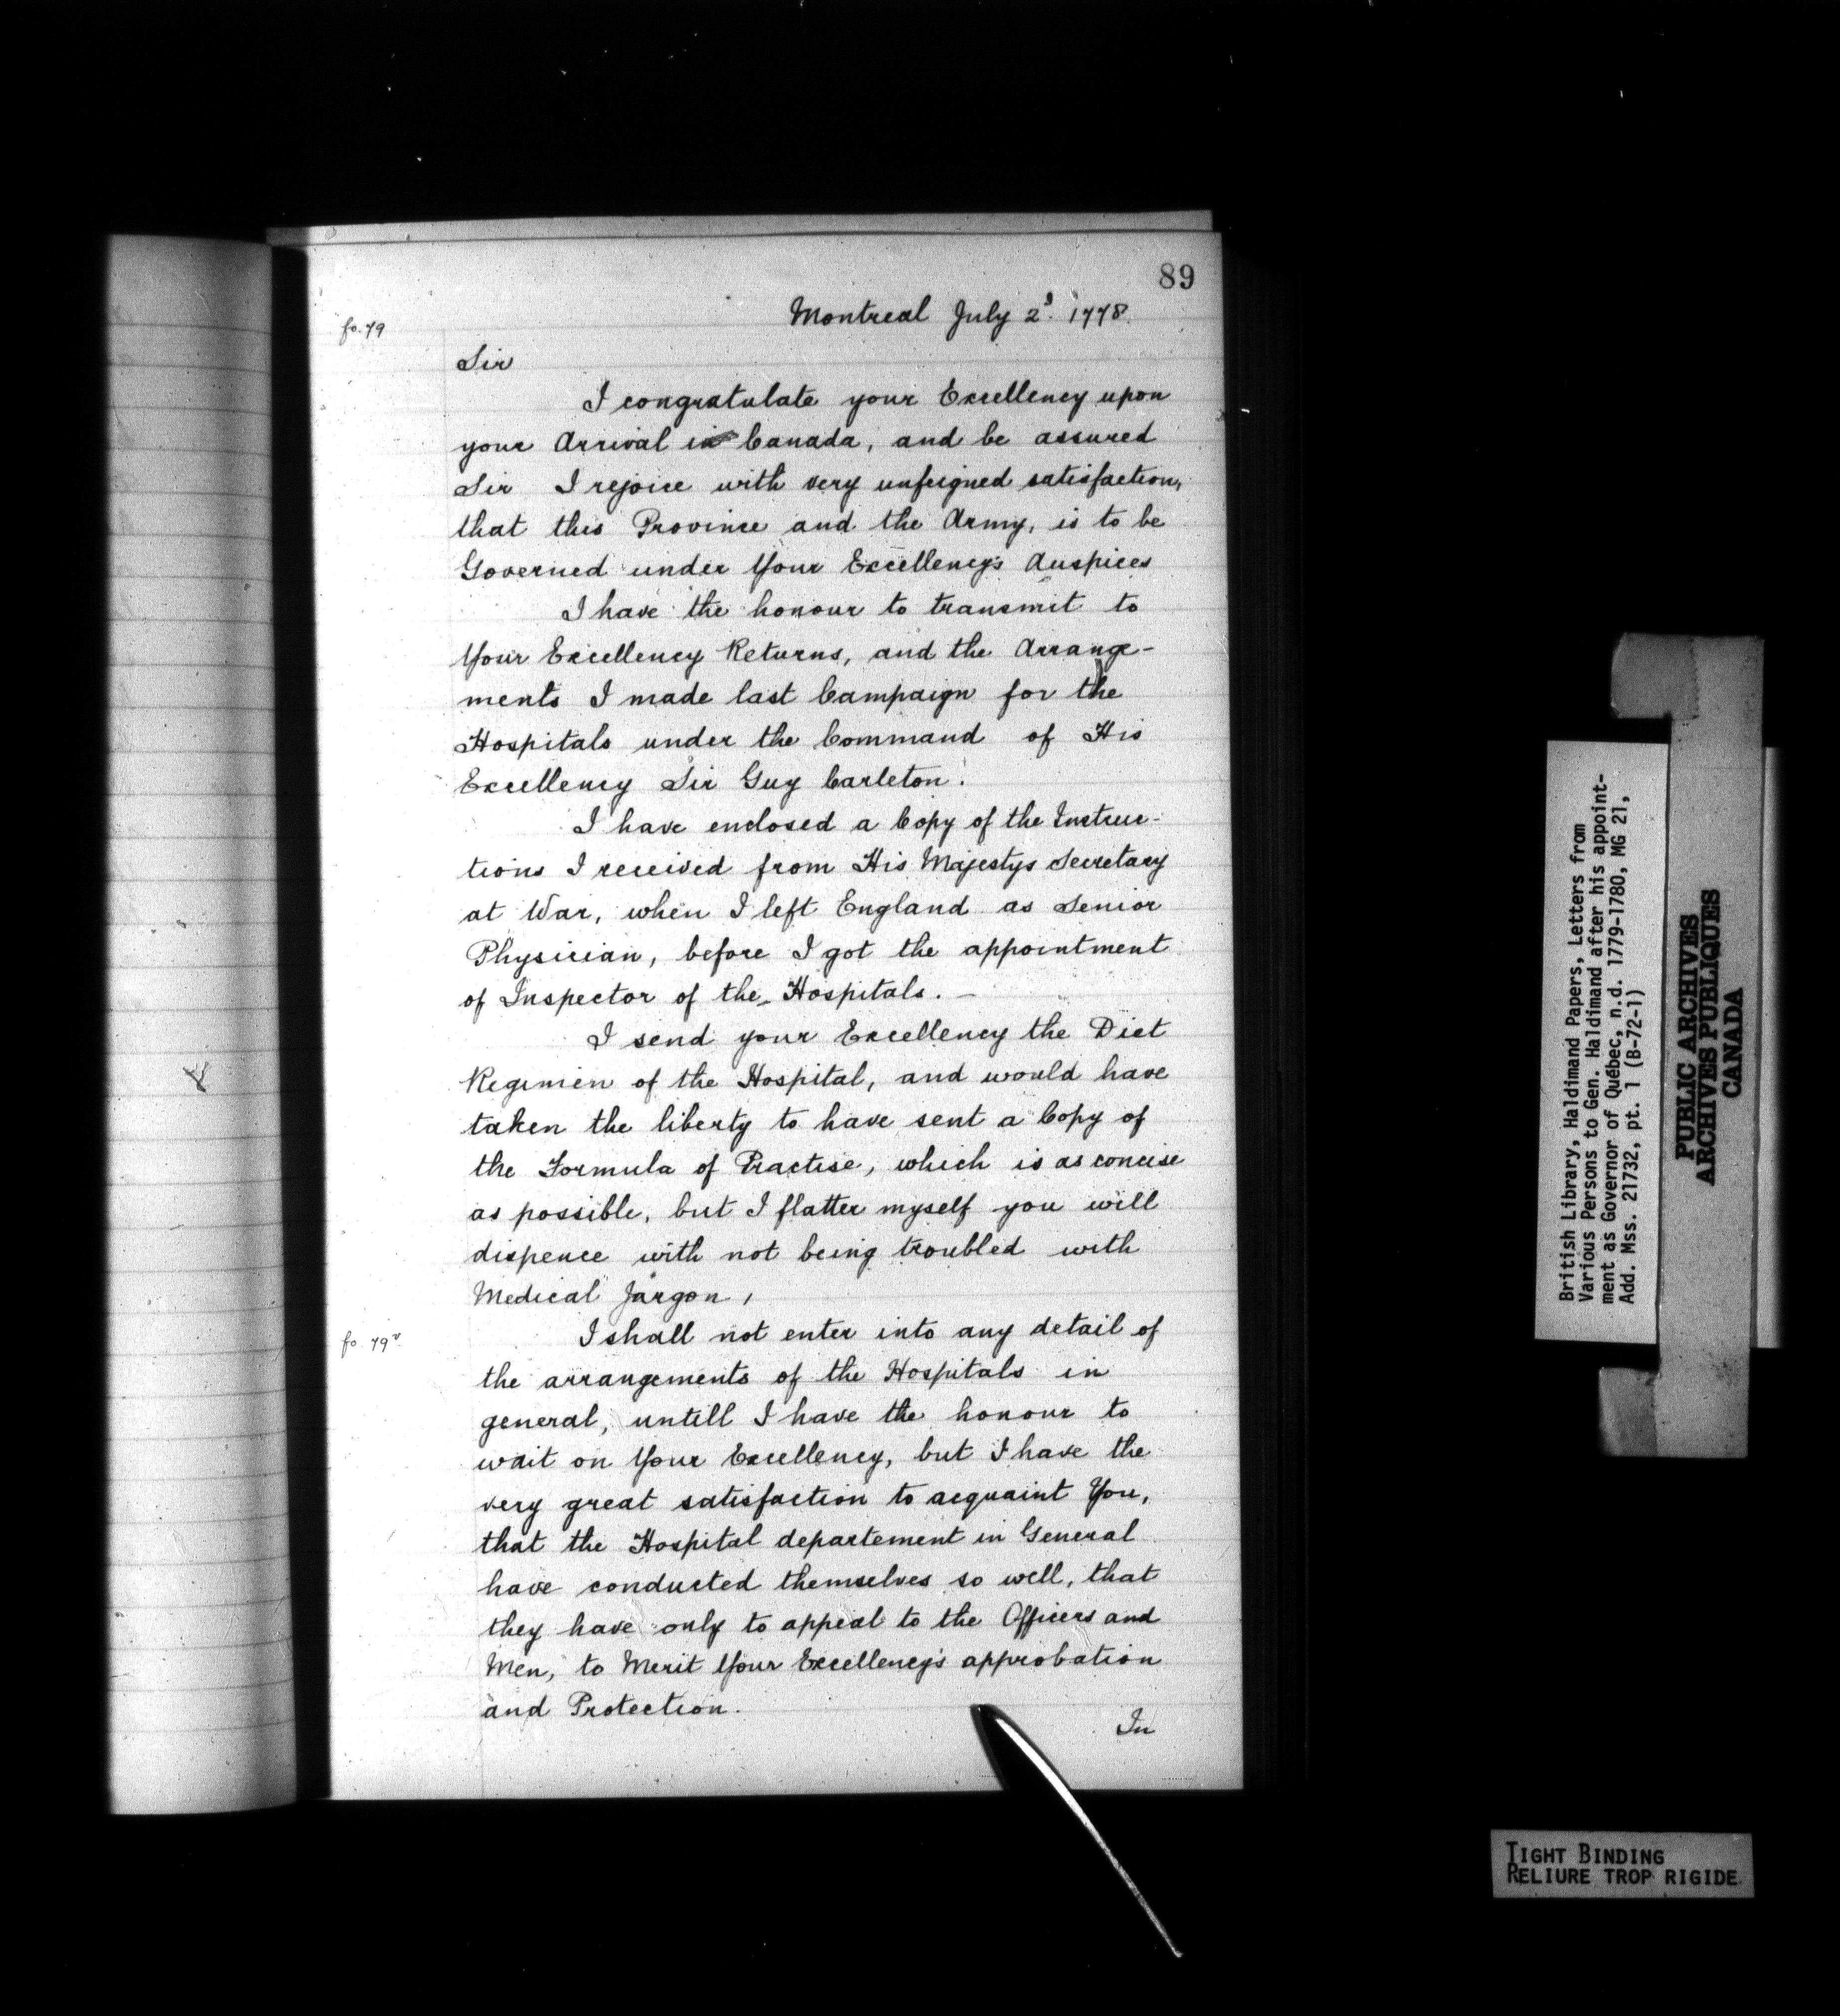 89
Montreal July 2d. 1778.
fo. 79
Sir
I congratulate your Excellency upon
your Arrival in Canada, and be assured
Sir I rejoice with very unfeigned satisfaction,
that this Province and the Army, is to be
Governed under Your Excellency's Auspices
I have the honour to transmit to
Your Excellency Returns, and the Arrange-
ments I made last Campaign for the
Hospitals under the Command of His
Excellency Sir Guy Carleton.
I have enclosed a Copy of the Instruc-
tions I received from His Majestys Secretary
at War, when I left England as Senior
Physician, before I got the appointment
of Inspector of the Hospitals. —
I send your Excellency the Diet
Regimen of the Hospital, and would have
taken the liberty to have sent a Copy of
the Formula of Practise, which is as concise
as possible, but I flatter myself you will
dispence with not being troubled with
Medical Jargon,
fo 79v
I shall not enter into any detail of
the arrangements of the Hospitals in
general, untill I have the honour to
wait on Your Excellency, but I have the
very great satisfaction to acquaint You,
that the Hospital departement in General
have conducted themselves so well, that
they have only to appeal to the Officers and
Men, to Merit Your Excellency's approbation
and Protection.
In
British Library, Haldimand Papers, Letters from
Various Persons to Gen. Haldimand after his appoint-
ment as Governor of Québec, n.d. 1779-1780, MG 21,
Add. Mss. 21732, pt. 1 (B-72-1)
PUBLIC ARCHIVES
ARCHIVES PUBLIQUES
CANADA
TIGHT BINDING
RELIURE TROP RIGIDE